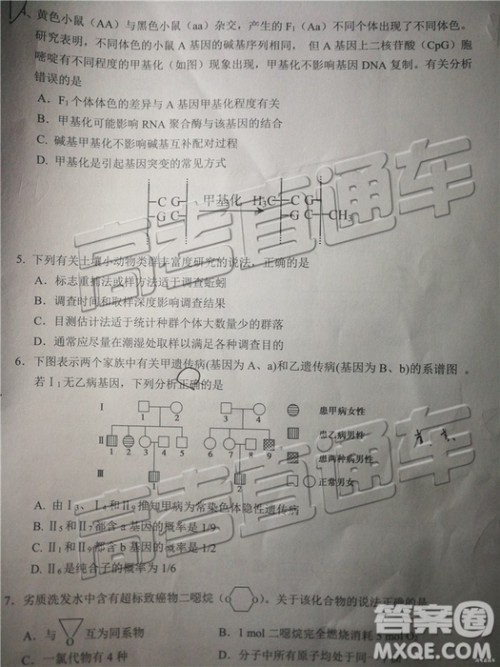 4、黄色小鼠（AA）与黑色小鼠（aa）杂交，产生的 F₁（Aa）不同个体出现了不同体色。
研究表明，不同体色的小鼠 A 基因的碱基序列相同，但 A 基因上二核苷酸（CpG）胞
嘧啶有不同程度的甲基化（如图）现象出现，甲基化不影响基因 DNA 复制。有关分析
错误的是
A．F₁ 个体体色的差异与 A 基因甲基化程度有关
B．甲基化可能影响 RNA 聚合酶与该基因的结合
C．碱基甲基化不影响碱基互补配对过程
D．甲基化是引起基因突变的常见方式
C G 甲基化 H₃C C G
G C G C CH₃
5．下列有关土壤小动物类群丰富度研究的说法，正确的是
A．标志重捕法或样方法适于调查蚯蚓
B．调查时间和取样深度影响调查结果
C．目测估计法适于统计种群个体大数量少的群落
D．通常应尽量在潮湿处取样以满足各种调查目的
6．下图表示两个家族中有关甲遗传病(基因为 A、a)和乙遗传病(基因为 B、b)的系谱图 。
若Ⅰ₁无乙病基因，下列分析正确的是
Ⅰ 1 2 3 4 患甲病女性
Ⅱ 1 2 3 4 5 6 7 8 9 患乙病男性
患两种病男性
Ⅲ 1 2 正常男女
A．由Ⅰ₃、Ⅰ₄和Ⅱ₈推知甲病为常染色体隐性遗传病
B.Ⅱ₅和Ⅱ₇都含 a 基因的概率是 1/9
C.Ⅱ₅和Ⅱ₆都含 b 基因的概率是 1/2
D.Ⅱ₆是纯合子的概率为 1/6
7．劣质洗发水中含有超标致癌物二噁烷（O O）。关于该化合物的说法正确的是
A．与 O 互为同系物 B．1 mol 二噁烷完全燃烧消耗 5 mol O₂
C．一氯代物有 4 种 D．分子中所有原子均处于同一
高考直通车
高考直通车
高考直通车
答案圈
MXQE.COM